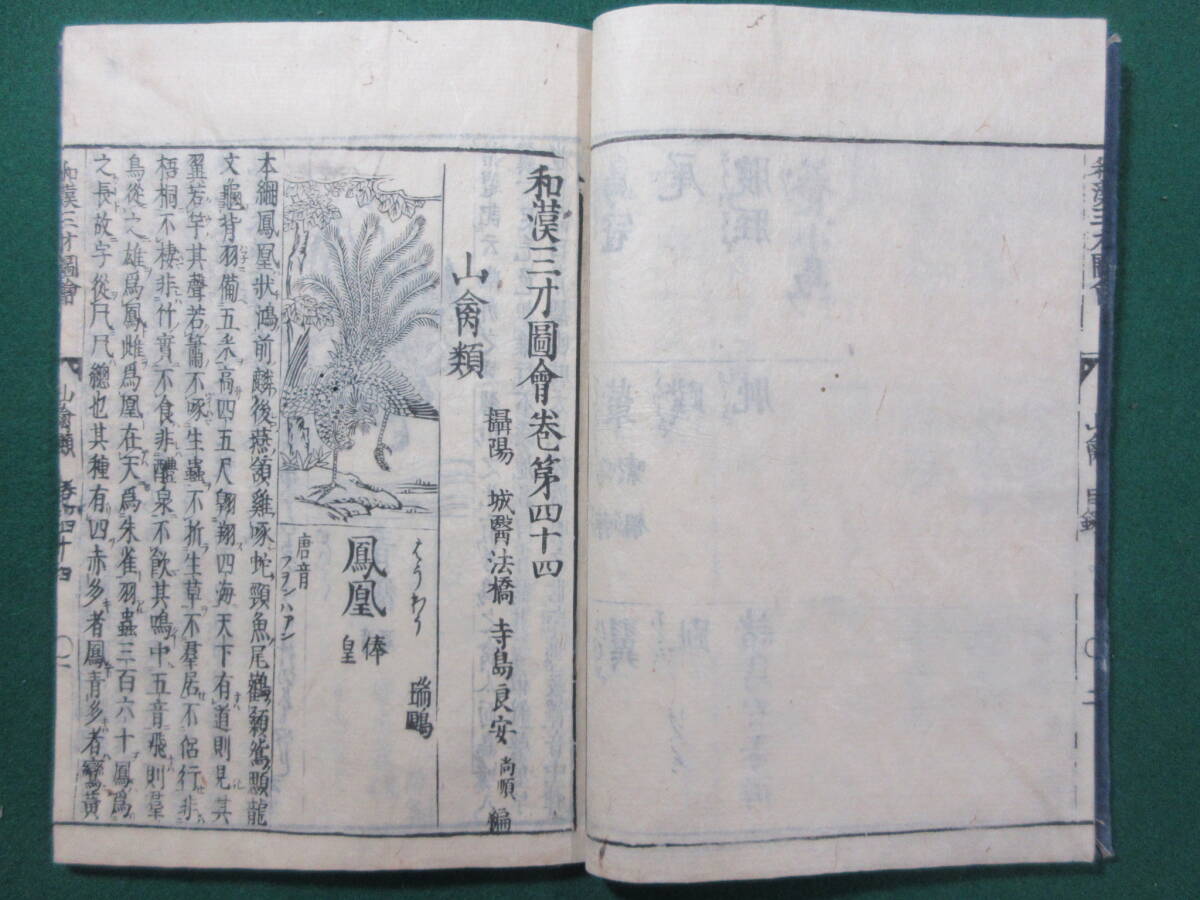 山禽 目録 〇 二
和漢三才圖會卷第四十四
攝陽 城醫法橋 寺島良安 尚順 編
山禽類
ほうわう
瑞鶠
鳳凰
俸
皇
唐音
フヲンハアン
本綱鳳凰狀鴻前麟後燕頷雞啄蛇頸魚尾鸛顙鴛顋龍
文龜背羽備五采高四五尺翱翔四海天下有道則見其
翼若竿其聲若簫不啄生蟲不折生草不羣居不侶行非
梧桐不棲非竹實不食非醴泉不飮其鳴中五音飛則羣
鳥從之雄爲鳳雌爲凰在天爲朱雀羽蟲三百六十鳳爲
之長故字從凡凡總也其種有四赤多者鳳青多者鸞黃
和漢三才圖會 山禽類 卷四十四 〇一